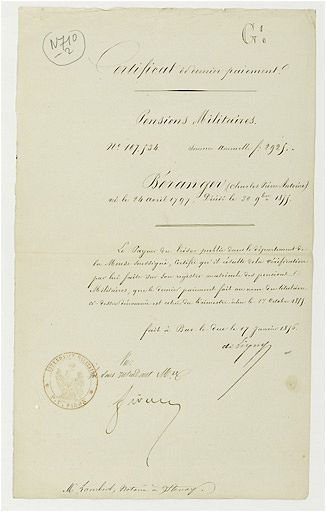 N710
2
G
Certificat de dernier paiement.
Pensions Militaires.
No. 107,534 Somme Annuelle f. 2925.
Béranger (Charles Pierre Antoine)
né le 24 avril 1797. Décédé le 20 9bre 1855.
Le Payeur du trésor public dans le département de
la Meuse soussigné, certifie qu'il résulte de la vérification
par lui faite sur son registre matricule des pensions
Militaires, que le dernier paiement fait au nom du titulaire
ci-dessus dénommé est celui du trimestre échu le 1er Octobre 1855
fait à Bar le Duc le 17 janvier 1856.
Vu
Le Sous Intendant Mre
Mr Lambert, Notaire à Stenay.